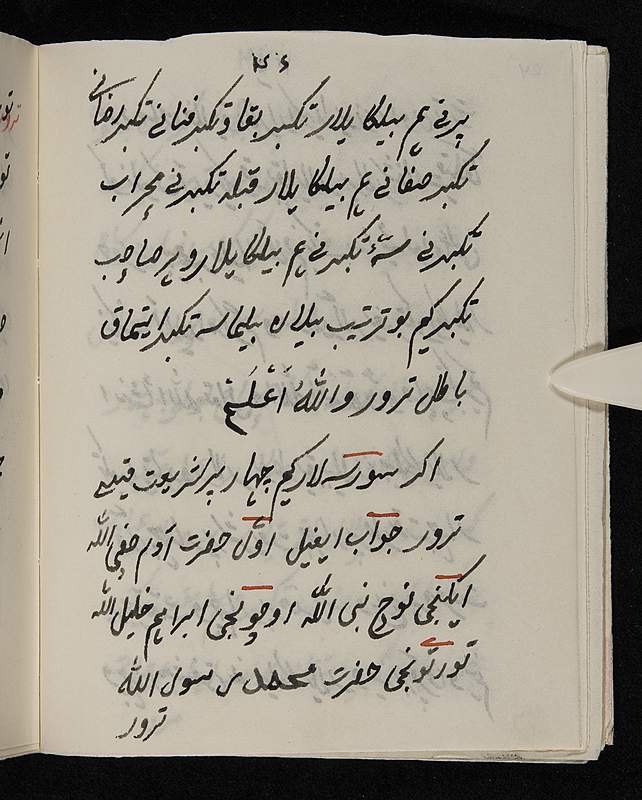 پیرنی هم بیلکا یلار تکبیر بقا و تکبیر فنانی تکبیر رضانی
تکبیر صفانی هم بیلکا یلار قبله تکبیر نی محراب
تکبیر نی تکبیر نی هم بیلکا یلار و هر صاحب
تکبیر کیم بو ترتیب بیلان بیلماسه تکبیر ایتماق
باطل ترور واللهُ اَعْلَمْ
اکر سورسه لارکیم چهار پیر شریعت قیسی
ترور جواب ایغیل اوّل حضرت آدم صفی الله
ایکنجی نوح نبی الله اوچونجی ابراهیم خلیل الله
تورتونجی حضرت محمد رسول الله
ترور